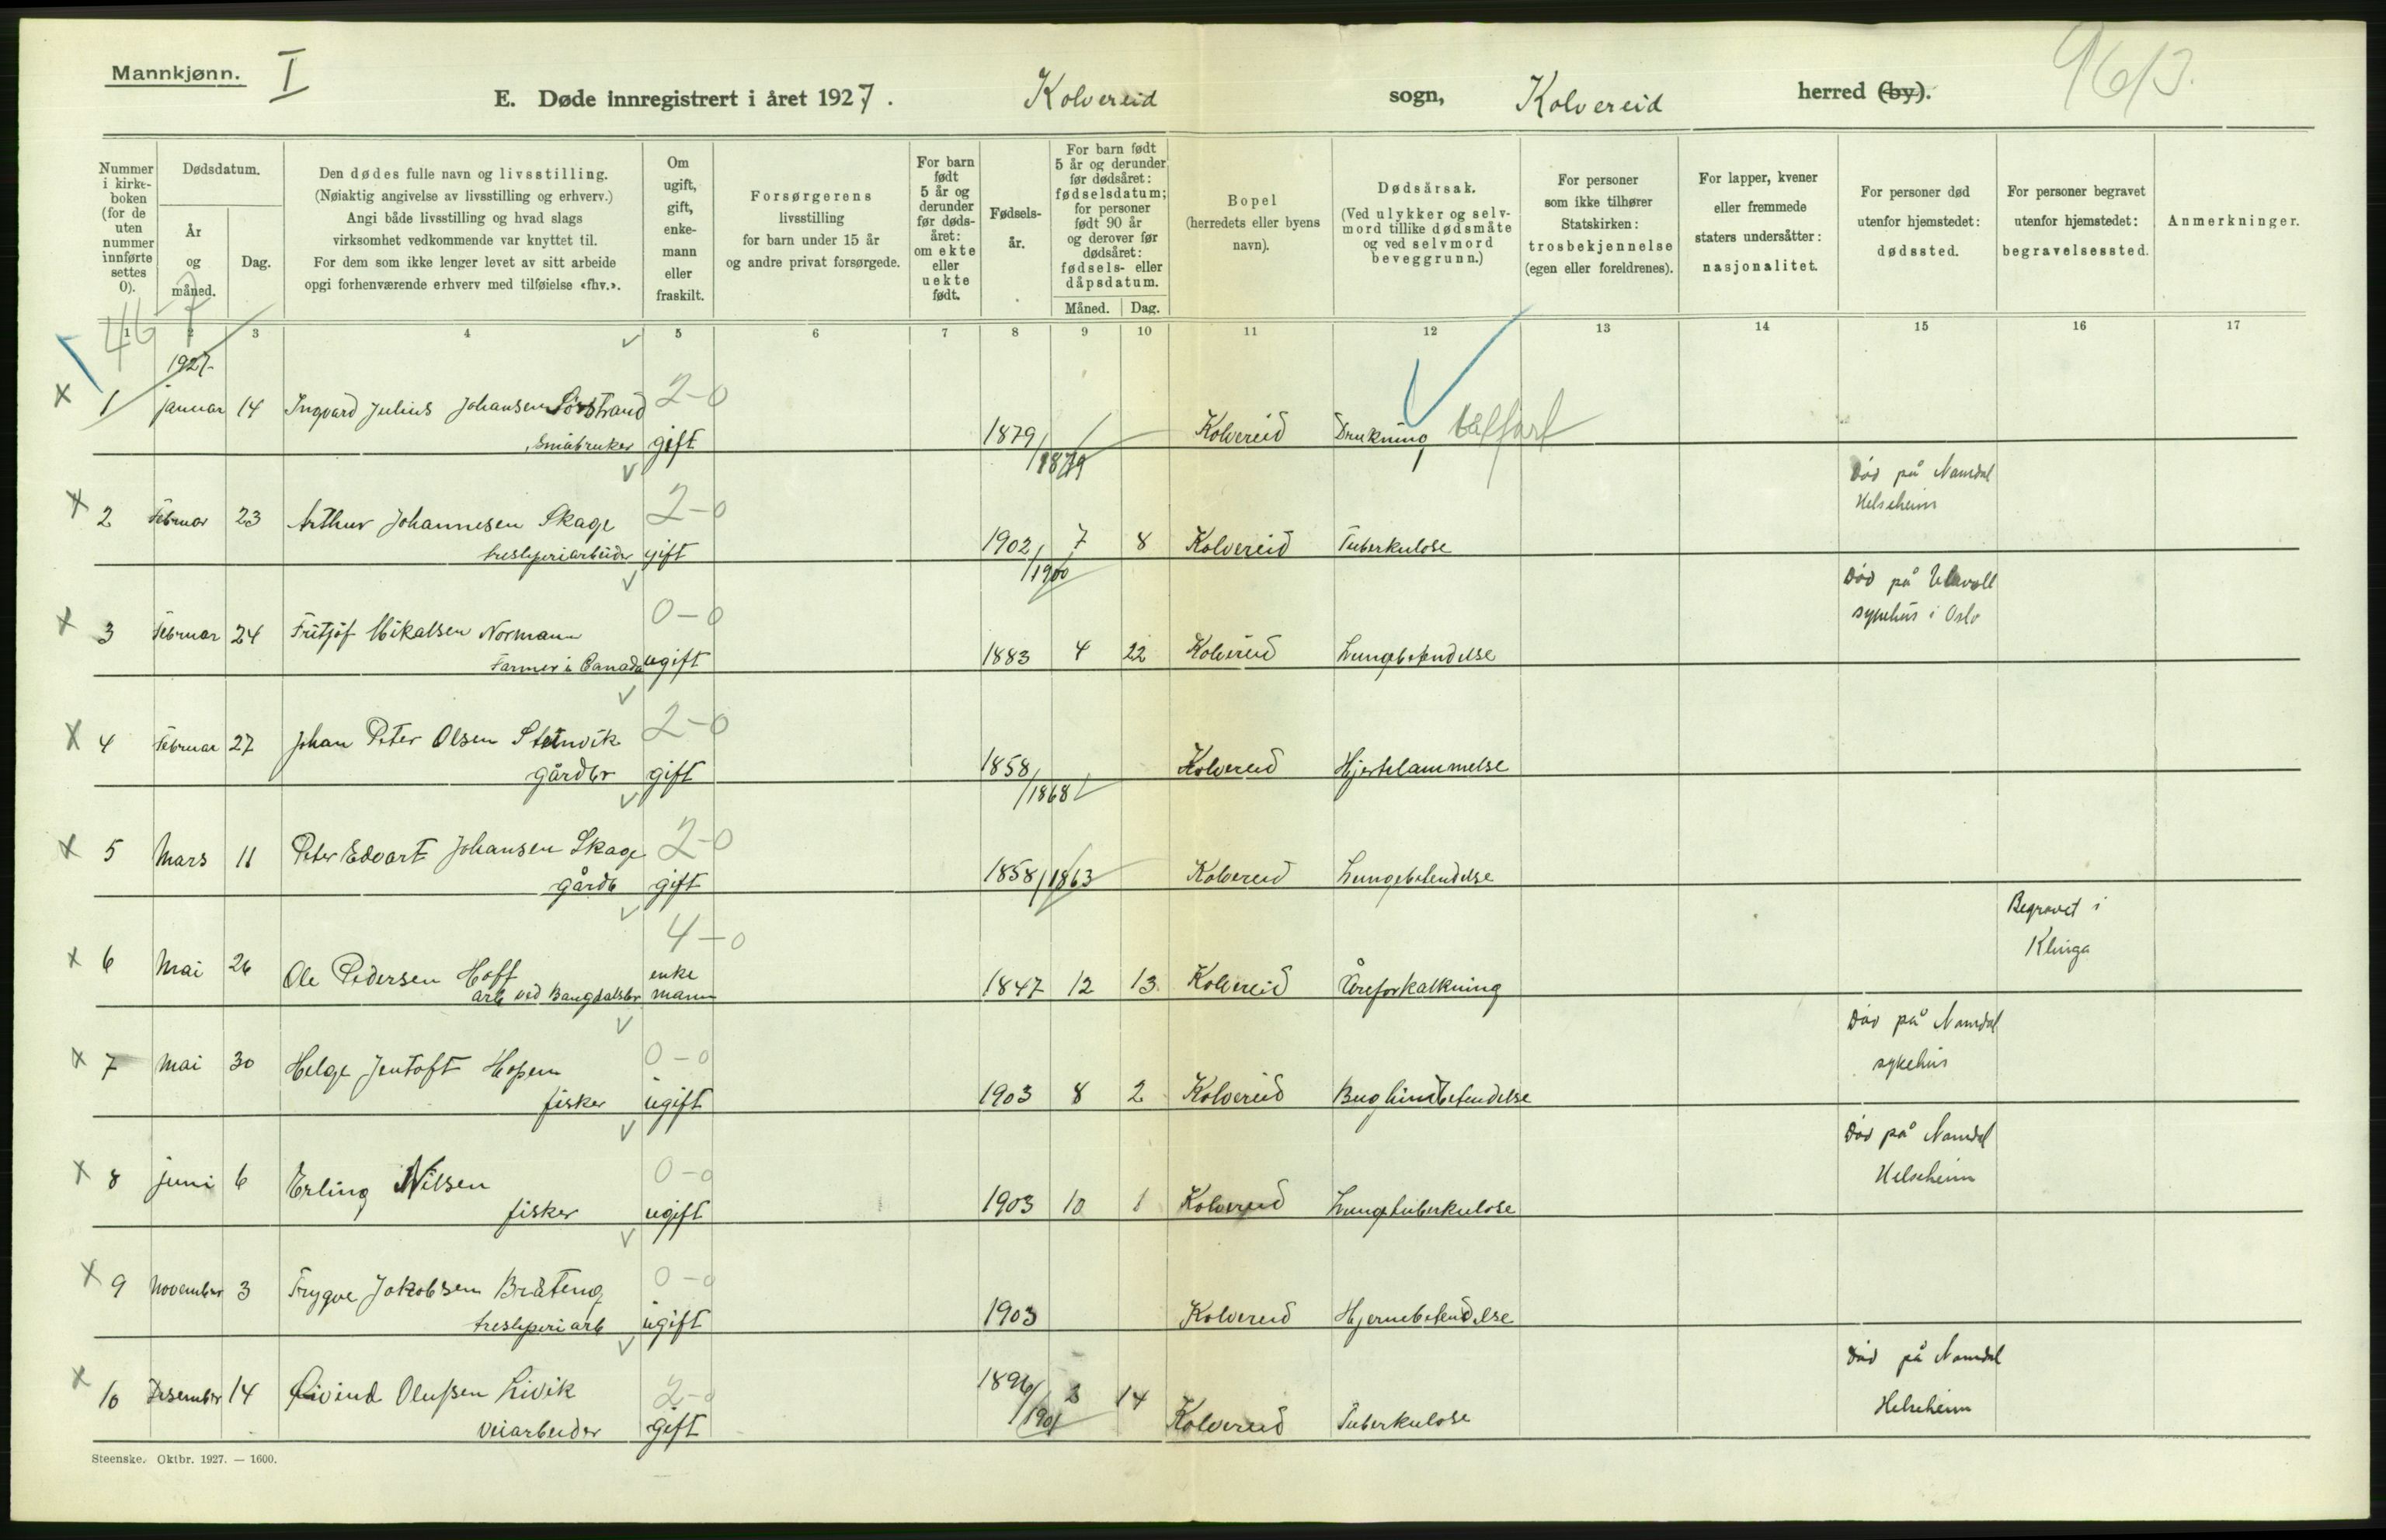 Mannkjønn. I
E. Døde innregistrert i året 1927. Kolvereid sogn, Kolvereid herred (by).
Nummer i kirkeboken (for de uten nummer innførte settes 0).
Dødsdatum.
År og måned.
Dag.
Den dødes fulle navn og livsstilling.
(Nøiaktig angivelse av livsstilling og erhverv.)
Angi både livsstilling og hvad slags
virksomhet vedkommende var knyttet til.
For dem som ikke lenger levet av sitt arbeide
opgi forhenværende erhverv med tilføielse «fhv.».
Om ugift, gift, enkemann eller fraskilt.
Forsørgerens
livsstilling
for barn under 15 år
og andre privat forsørgede.
For barn født 5 år og derunder før dødsåret: om ekte eller uekte født.
Fødselsår.
For barn født 5 år og derunder før dødsåret: fødselsdatum; for personer født 90 år og derover før dødsåret: fødsels- eller dåpsdatum.
Måned. Dag.
Bopel
(herredets eller byens
navn).
Dødsårsak.
(Ved ulykker og selvmord tillike dødsmåte og ved selvmord beveggrunn.)
For personer
som ikke tilhører
Statskirken:
trosbekjennelse
(egen eller foreldrenes).
For lapper, kvener
eller fremmede
staters undersåtter:
nasjonalitet.
For personer død
utenfor hjemstedet:
dødssted.
For personer begravet
utenfor hjemstedet:
begravelsessted.
Anmerkninger.
1 2 3 4 5 6 7 8 9 10 11 12 13 14 15 16 17
46 7
1927.
1 januar 14 Ingvard Julius Johansen Sørstrand 2-0
Småbruker gift 1879 / 1879 Kolvereid Drukning
2 Februar 23 Arthur Johannesen Skage 2-0 Død på Namdal Helseheim
tresliperiarbeider gift 1902 / 1900 7 8 Kolvereid Tuberkulose
3 Februar 24 Fritjof Mikalsen Normann 0-0 Død på Ulevoll sykehus i Oslo
Farmer i Canada ugift 1883 4 22 Kolvereid Lungebetendelse
4 Februar 27 Johan Peter Olsen Steinvik 2-0
gårdbr gift 1858 / 1868 Kolvereid Hjertelammelse
5 Mars 11 Peter Edvart Johansen Skage 2-0
gårdb gift 1858 / 1863 Kolvereid Lungebetendelse
6 Mai 26 Ole Pedersen Hoff 4-0 Begravet i Klinga
arb ved Bangdalsbr enkemann 1847 12 13 Kolvereid Åreforkalkning
7 Mai 30 Helge Jentoft Hopen 0-0 Død på Namdal sykehus
fisker ugift 1903 8 2 Kolvereid Bughindebetendelse
8 juni 6 Erling Nilsen 0-0 Død på Namdal Helseheim
fisker ugift 1903 10 1 Kolvereid Lungetuberkulose
9 November 3 Trygve Jakobsen Bråteng 0-0
tresliperiarb ugift 1903 Kolvereid Hjernebetendelse
10 Desember 14 Eivind Olussen Livik 2-0 Død på Namdal Helseheim
veiarbeider gift 1896 / 1901 3 14 Kolvereid Tuberkulose
Steenske. Oktbr. 1927. — 1600.